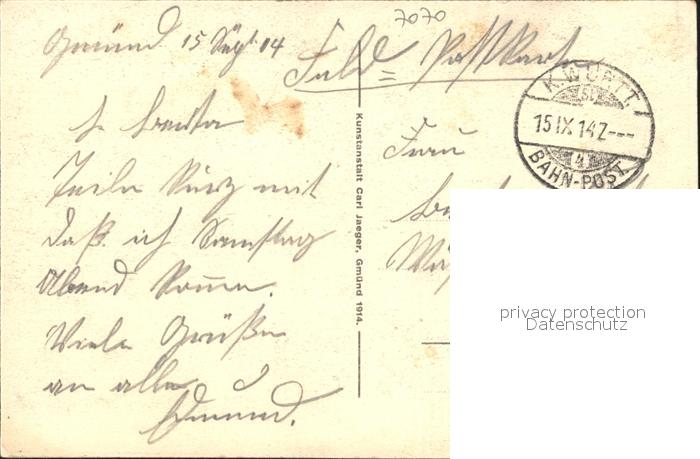 7070
Gmünd 15 Sept 14
Feld = Postkart
L. 
Teile Kurz mit
daß ich Samstag
Abend Komme.
Viele Grüße
an alle
Edmund.
Kunstanstalt Carl Jaeger, Gmünd 1914.
Frau
K. WÜRTT.
15 IX 14 Z---
4
BAHN-POST.
privacy protection
Datenschutz